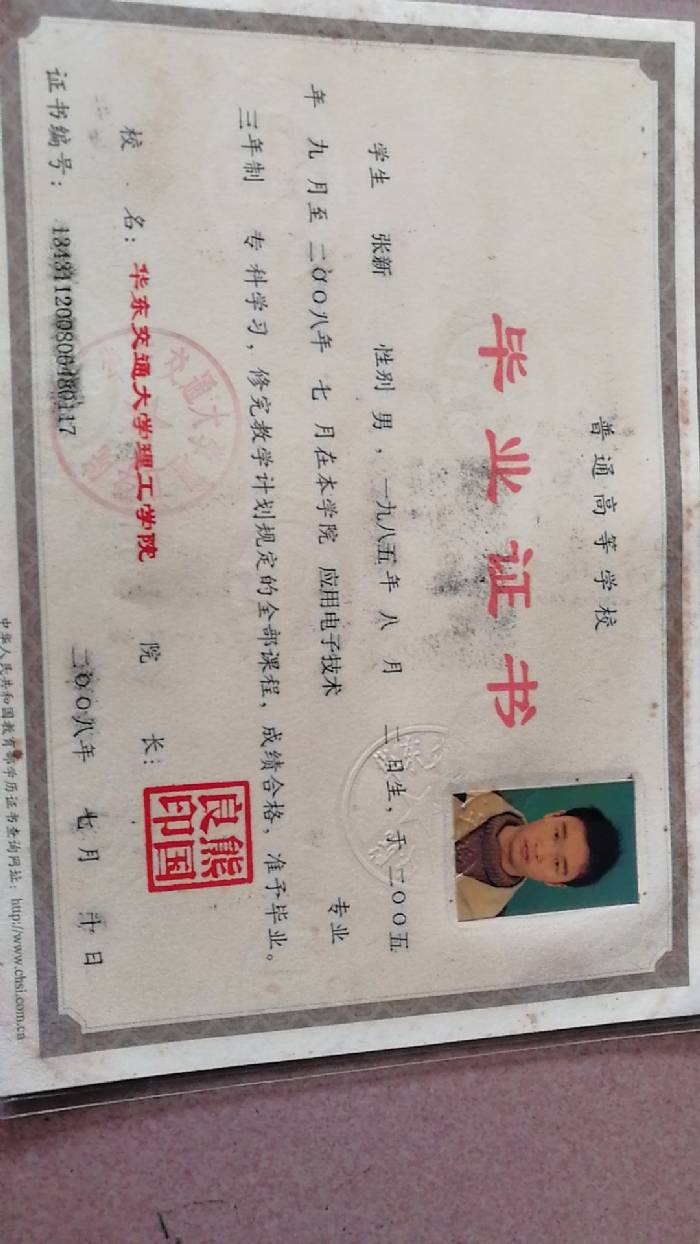 普通高等学校
毕业证书
学生 张新 性别 男，一九八五年 八 月 二 日生，于 二〇〇五
年 九 月至 二〇〇八年 七 月在本学院 应用电子技术 专业
三年制 专科学习，修完教学计划规定的全部课程，成绩合格，准予毕业。
校 名：华东交通大学理工学院 院 长：
熊国良印
证书编号： 134311200806480117 二〇〇八年 七 月 日
中华人民共和国教育部学历证书查询网址：http://www.chsi.com.cn